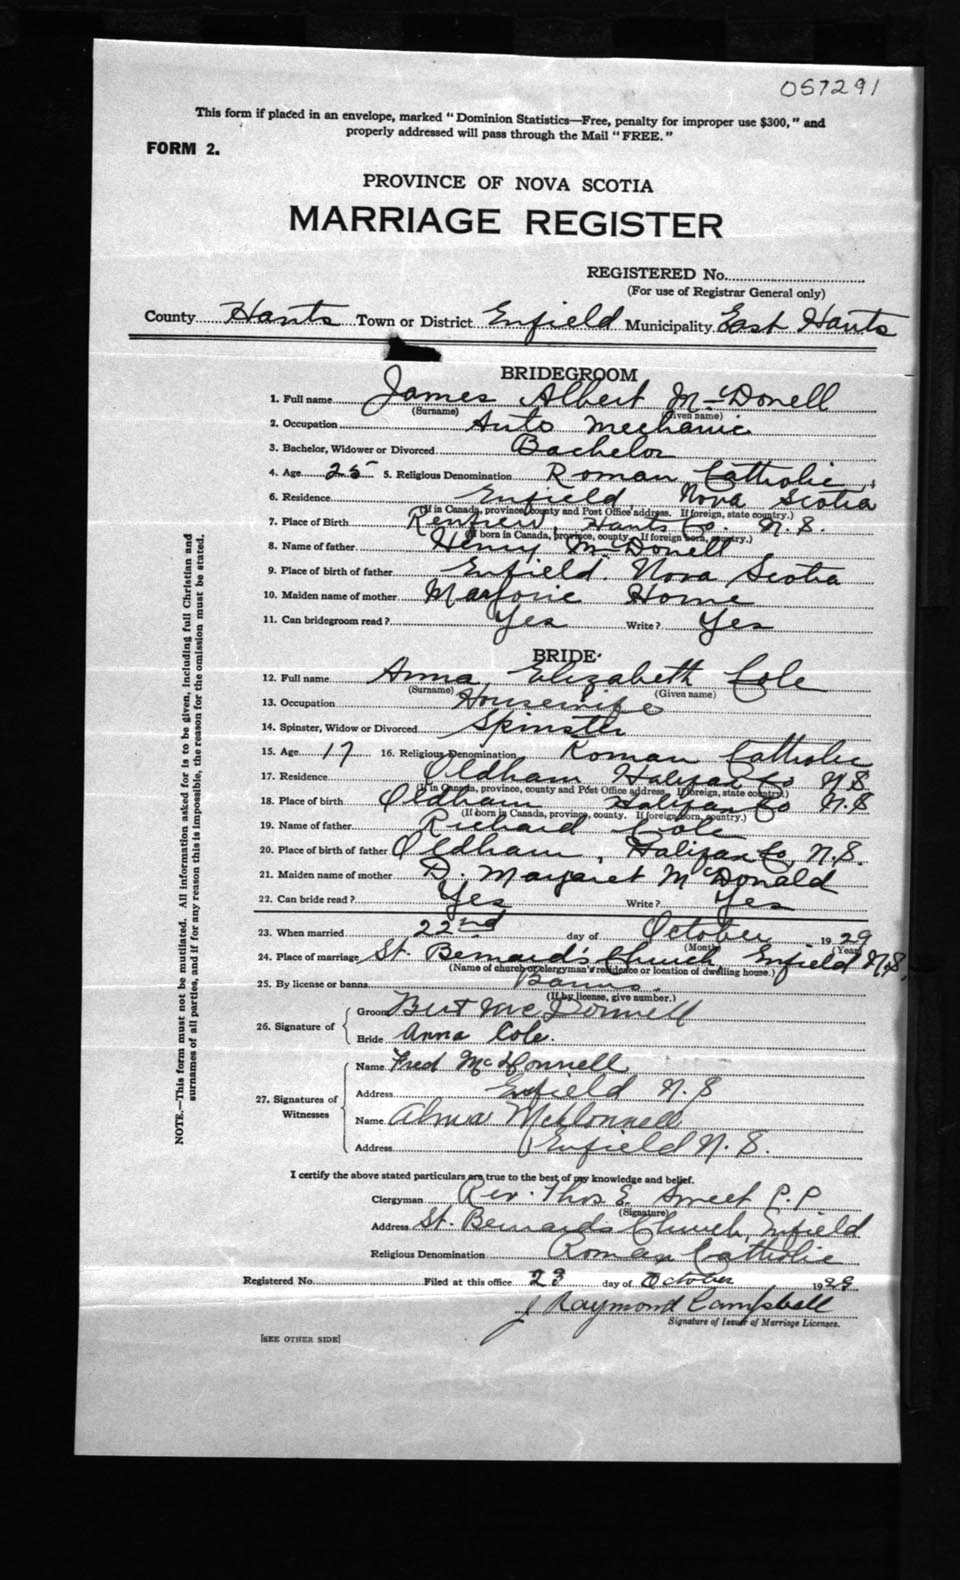 057291
This form if placed in an envelope, marked "Dominion Statistics—Free, penalty for improper use $300," and
properly addressed will pass through the Mail "FREE."
FORM 2.
PROVINCE OF NOVA SCOTIA
MARRIAGE REGISTER
REGISTERED No.
(For use of Registrar General only)
County Hants Town or District Enfield Municipality East Hants
BRIDEGROOM
1. Full name James Albert McDonell
(Surname) (Given name)
2. Occupation Auto Mechanic
3. Bachelor, Widower or Divorced Bachelor
4. Age 25 5. Religious Denomination Roman Catholic
6. Residence Enfield, Nova Scotia
(If in Canada, province, county and Post Office address. If foreign, state country.)
7. Place of Birth Renfrew, Hants Co. N.S.
(If born in Canada, province, county. If foreign born, country.)
8. Name of father Henry McDonell
9. Place of birth of father Enfield. Nova Scotia
10. Maiden name of mother Marjorie Horne
11. Can bridegroom read? Yes Write? Yes
BRIDE
12. Full name Anna Elizabeth Cole
(Surname) (Given name)
13. Occupation Housewife
14. Spinster, Widow or Divorced Spinster
15. Age 17 16. Religious Denomination Roman Catholic
17. Residence Oldham Halifax Co N.S.
(If in Canada, province, county and Post Office address. If foreign, state country.)
18. Place of birth Oldham Halifax Co N.S
(If born in Canada, province, county. If foreign born, country.)
19. Name of father Richard Cole
20. Place of birth of father Oldham, Halifax Co, N.S.
21. Maiden name of mother D. Margaret McDonald
22. Can bride read? Yes Write? Yes
23. When married 22nd day of October 1929
(Month) (Year)
24. Place of marriage St. Bernard's Church Enfield N.S.
(Name of church or clergyman's residence or location of dwelling house.)
25. By license or banns Banns.
(If by license, give number.)
26. Signature of
Groom Bert McDonnell
Bride Anna Cole.
27. Signatures of Witnesses
Name Fred McDonnell
Address Enfield N.S
Name Alma McDonnell
Address Enfield N.S.
I certify the above stated particulars are true to the best of my knowledge and belief.
Clergyman Rev. Thos E. Sweet P.P
(Signature)
Address St. Bernards Church, Enfield
Religious Denomination Roman Catholic
Registered No. Filed at this office 23 day of October 1929
J Raymond Campbell
Signature of Issuer of Marriage Licenses.
[SEE OTHER SIDE]
NOTE.—This form must not be mutilated. All information asked for is to be given, including full Christian and
surnames of all parties, and if for any reason this is impossible, the reason for the omission must be stated.